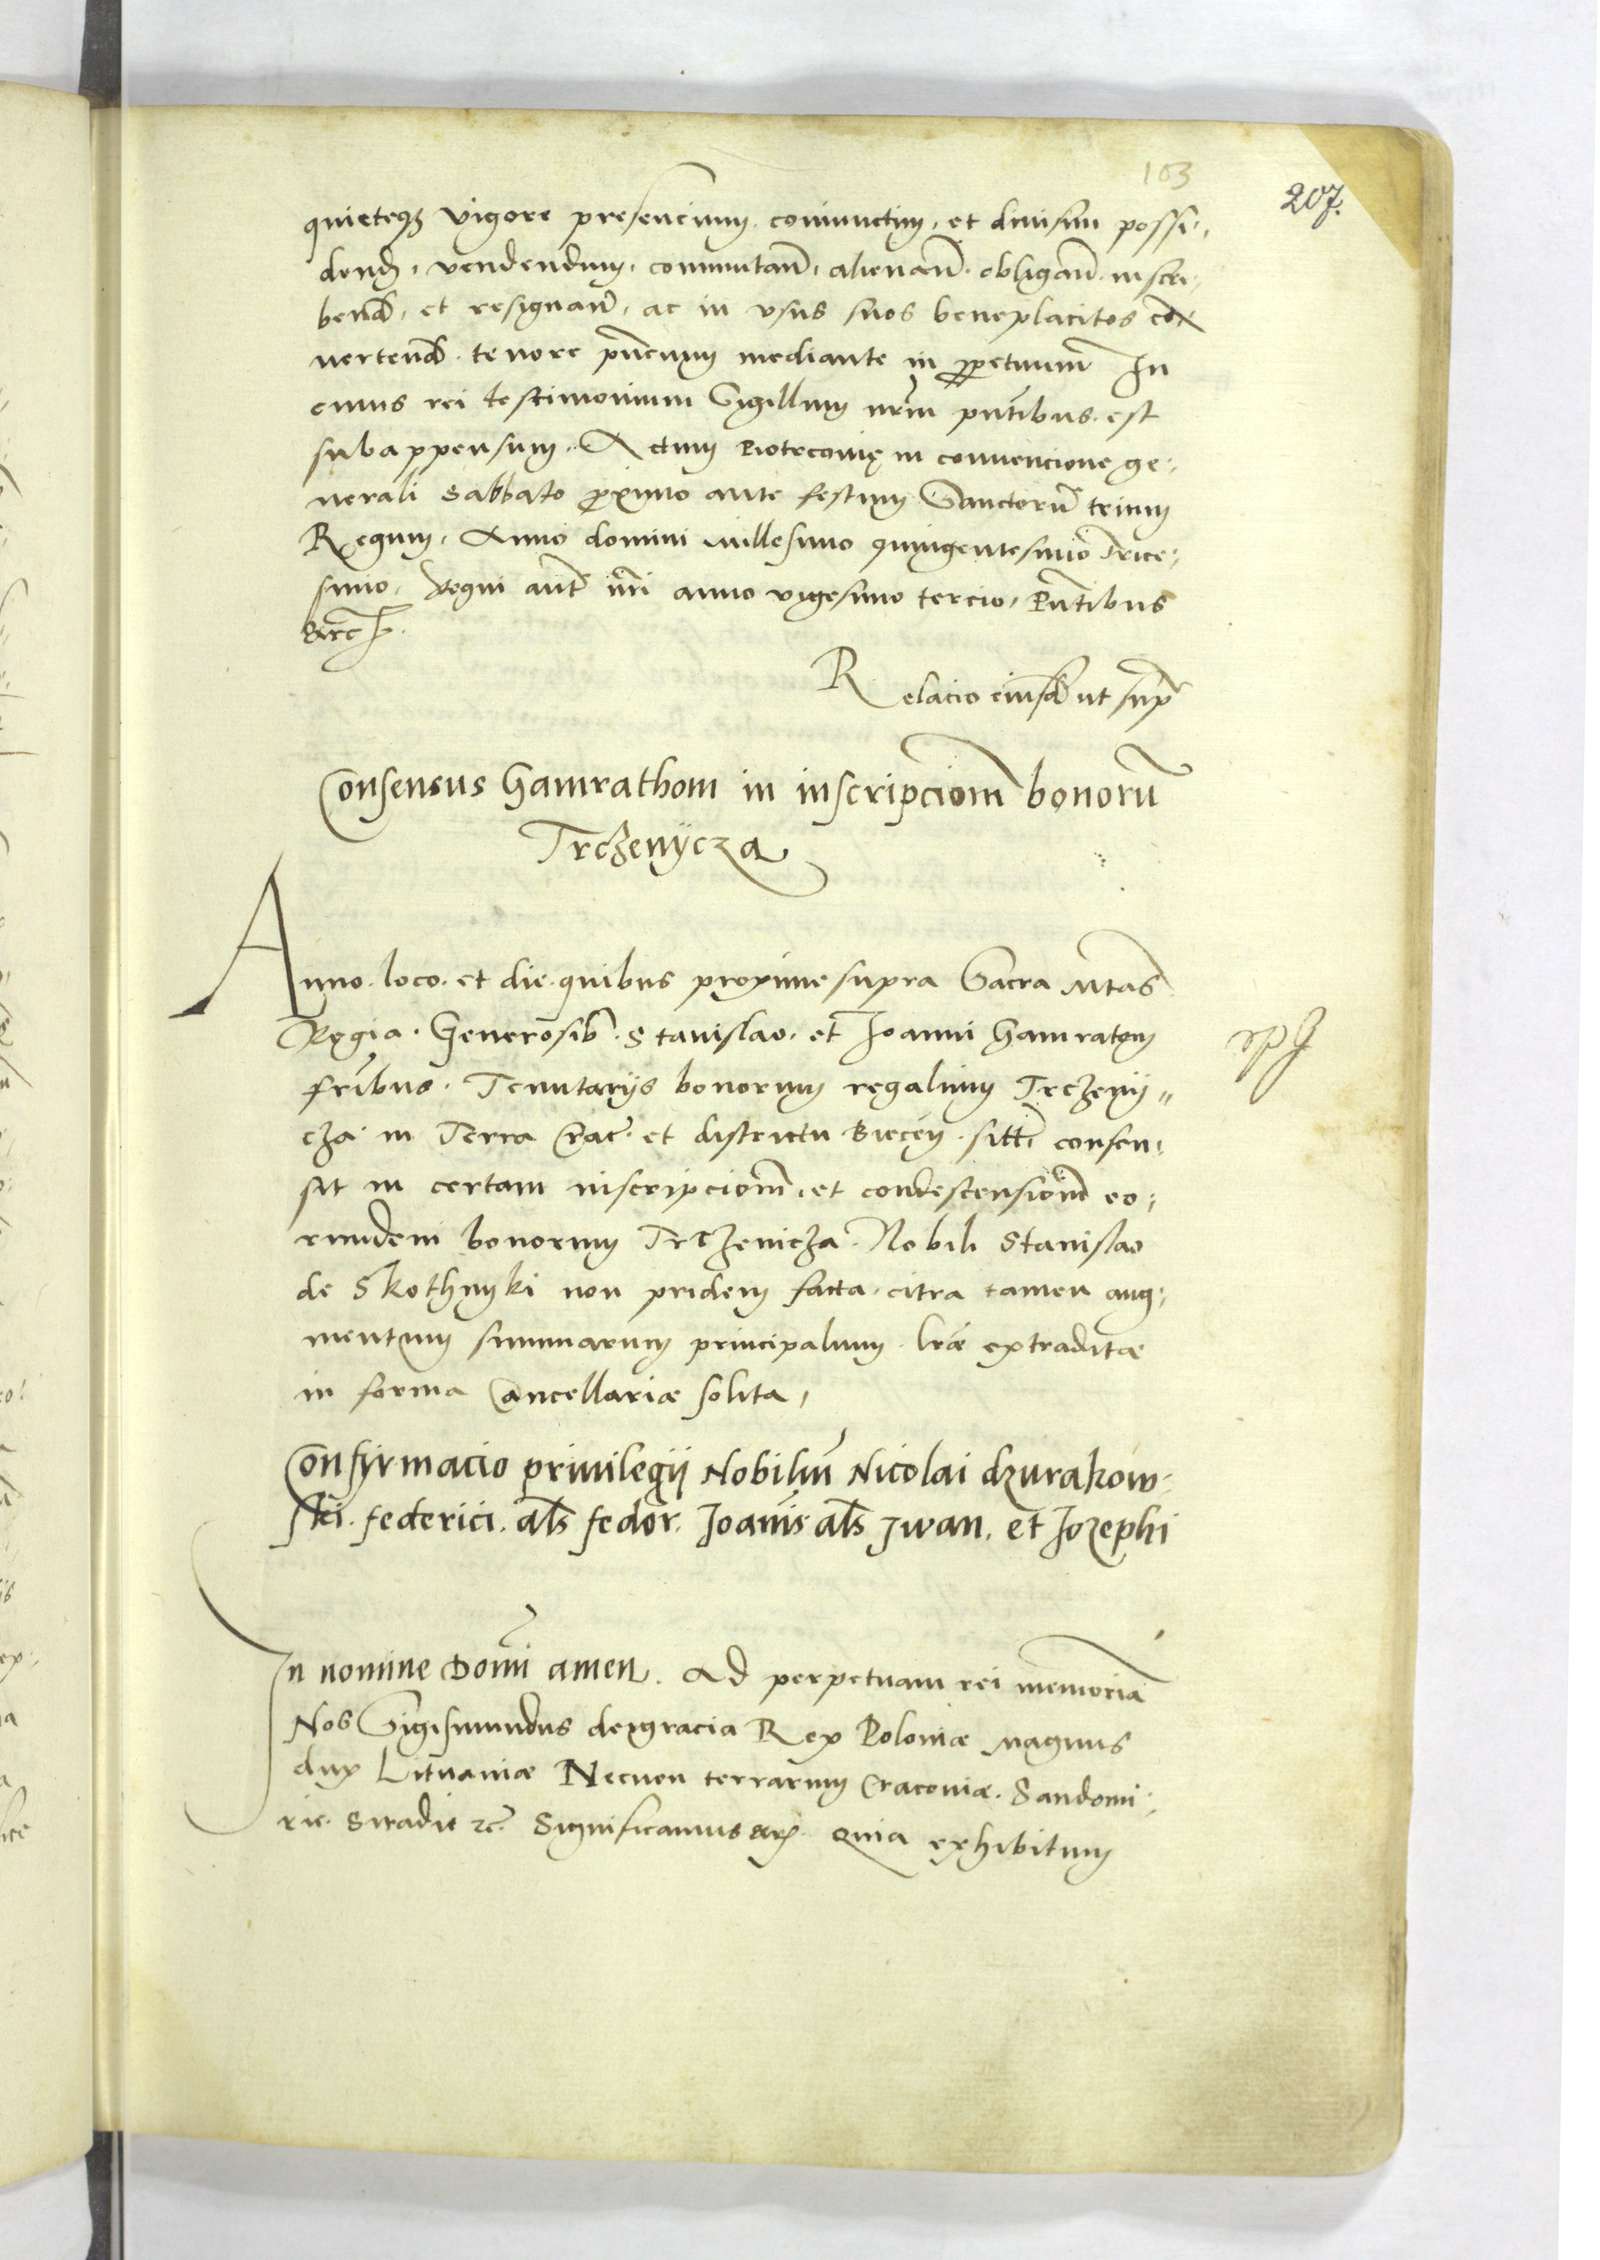 103
207.
quieteqꝫ vigore presencium coniunctim, et diuisim possi,
dend, vendendum, commutañ, alienañ obligañ inscri,
bend, et resignañ, ac in vsus suos beneplacitos con
uertend tenore pñcium mediante in ꝑpetuum In
cuius rei testimonium Sigillum nrm pñtibus est
subappensum. Actum Piotrcouię in conuencione ge,
nerali Sabbato ꝓximo ante festum Sanctorũ trium
Regum, Anno domini millesimo quingentesimo Trice,
simo, Regni aũt nri anno vigesimo tercio, Pñtibus
etc
Relacio eiusd ut supꝛ
Consensus Hamrathom in inscripciom̃ bonorũ
Trczenÿcza
Anno loco et die quibus proxime supra Sacra Mtas
Regia Generosib Stanislao et Joanni Hamratom
fribus Tenutarÿs bonorum regalium Trczenÿ„
cza in Terra Crac̃ et districtu Biecen sitt̃ consen,
sit in certam inscripciom̃ et condescensiom̃ eo,
rundem bonorum Trczenicza Nobili Stanislao
de Skothnyki non pridem facta citra tamen aug,
mentum summarum principalium lr̃æ extraditæ
in forma Cancellariæ solita,
Confirmacio priuilegÿ Nobiliũ Nicolai dzurakow,
ski. federici. als fedor. Joanis als Jwan. et Jozephi
In nomine Domĩ amen. Ad perpetuam rei memoriã
Nos Sigismundus dei gracia Rex Poloniæ magnus
dux Lituaniæ Necnon terrarum Cracouiæ. Sandomi,
rie. Siradie ⁊c̃ Significamus etc Quia exhibitum